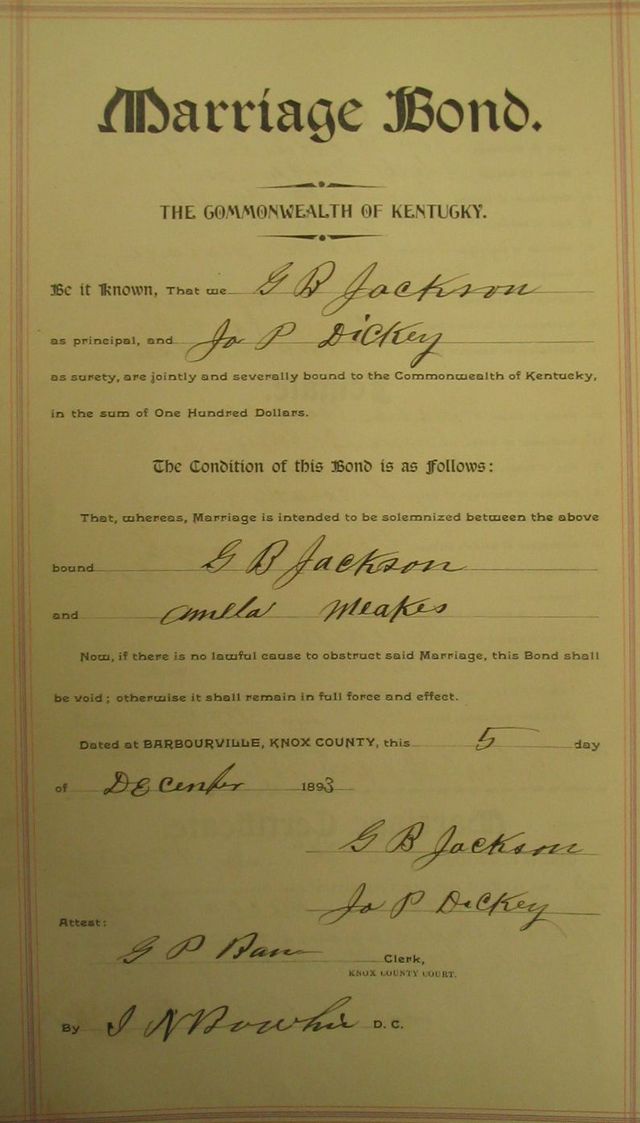 Marriage Bond.
THE COMMONWEALTH OF KENTUCKY.
Be it Known, That we G B Jackson
as principal, and Jo P Dickey
as surety, are jointly and severally bound to the Commonwealth of Kentucky,
in the sum of One Hundred Dollars.
The Condition of this Bond is as Follows:
That, whereas, Marriage is intended to be solemnized between the above
bound G B Jackson
and Amela Meakes
Now, if there is no lawful cause to obstruct said Marriage, this Bond shall
be void; otherwise it shall remain in full force and effect.
Dated at BARBOURVILLE, KNOX COUNTY, this 5 day
of December 1893
G B Jackson
Jo P Dickey
Attest:
G P Clerk,
KNOX COUNTY COURT.
By I N D. C.